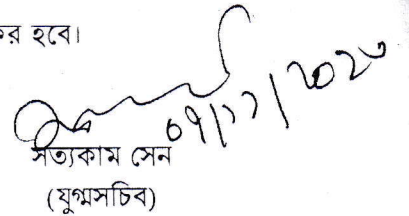 র হবে।
০৭/১১/২০২৩
সত্যকাম সেন
(যুগ্মসচিব)